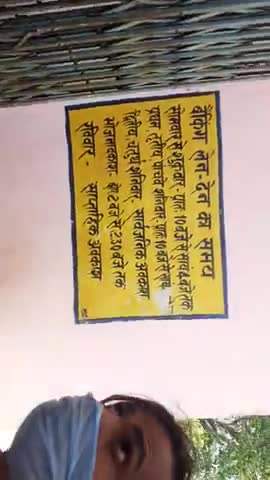 बैंकिंग लेन-देन का समय
सोमवार से शुक्रवार- प्रातः 10 बजे से सायं 4 बजे तक
प्रथम, तृतीय, पांचवे शनिवार- प्रातः 10 बजे से सायं
द्वितीय, चतुर्थ शनिवार, सार्वजनिक अवकाश
भोजनावकाश- 2 बजे से 2.30 बजे तक
रविवार - साप्ताहिक अवकाश